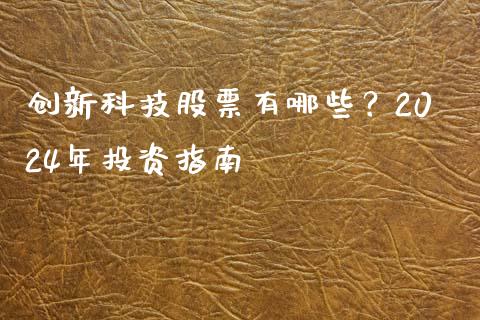 创新科技股票有哪些？20
24年投资指南